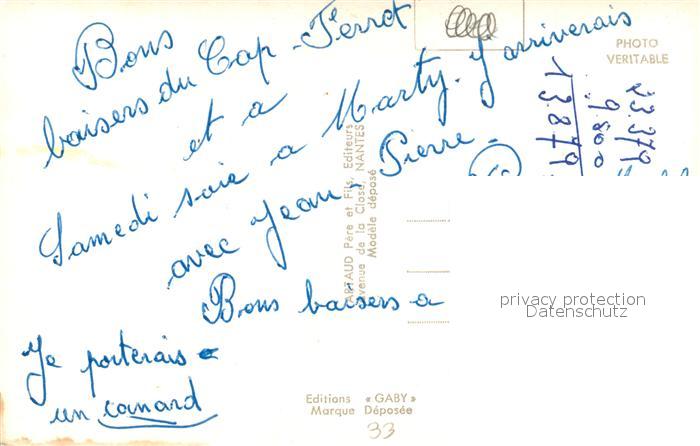 Bons
baisers du Cap-Ferret
et a
Samedi soir a Marty. J'arriverais
avec Jean-Pierre.
Bons baisers a
Je porterais
un canard
PHOTO
VERITABLE
23.379
9.800
13.879
ARTAUD Père et Fils, Editeurs
Avenue de la Close, NANTES
Modèle déposé
Editions « GABY »
Marque Déposée
33
privacy protection
Datenschutz